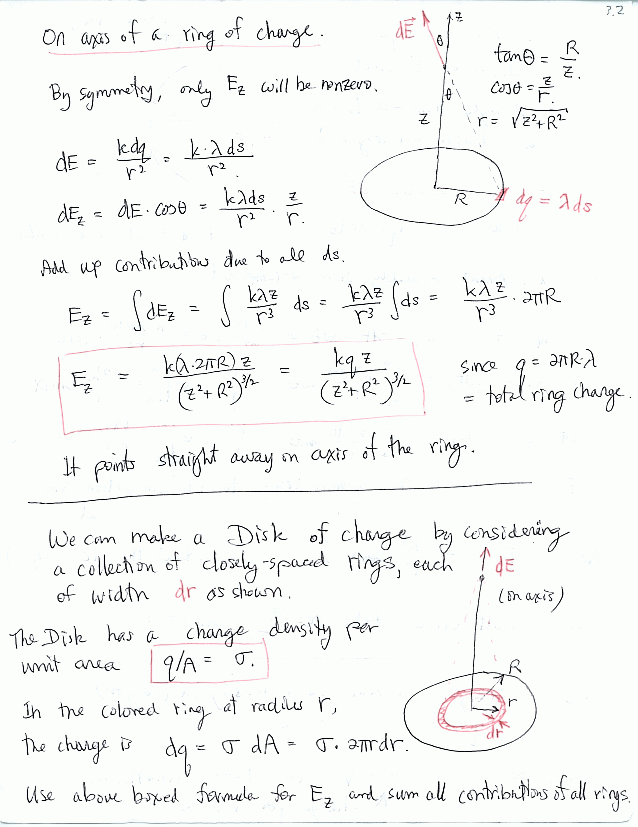 3.2
On axis of a ring of charge.
By symmetry, only E_z will be nonzero.
dE = kdq/r² = k·λds/r²
dE_z = dE·cosθ = kλds/r² · z/r.
dE⃗ z
θ
θ
z
R
tanθ = R/z.
cosθ = z/r.
r = √(z²+R²)
dq = λds
Add up contributions due to all ds.
E_z = ∫dE_z = ∫ kλz/r³ ds = kλz/r³ ∫ds = kλz/r³ · 2πR
E_z = k(λ·2πR)z/(z²+R²)^3/2 = kqz/(z²+R²)^3/2
since q = 2πR·λ
= total ring charge.
It points straight away on axis of the ring.
We can make a Disk of charge by considering
a collection of closely-spaced rings, each
of width dr as shown.
dE
(on axis)
R
r
dr
The Disk has a charge density per
unit area q/A = σ.
In the colored ring at radius r,
the charge is dq = σ dA = σ· 2πrdr.
Use above boxed formula for E_z and sum all contributions of all rings.